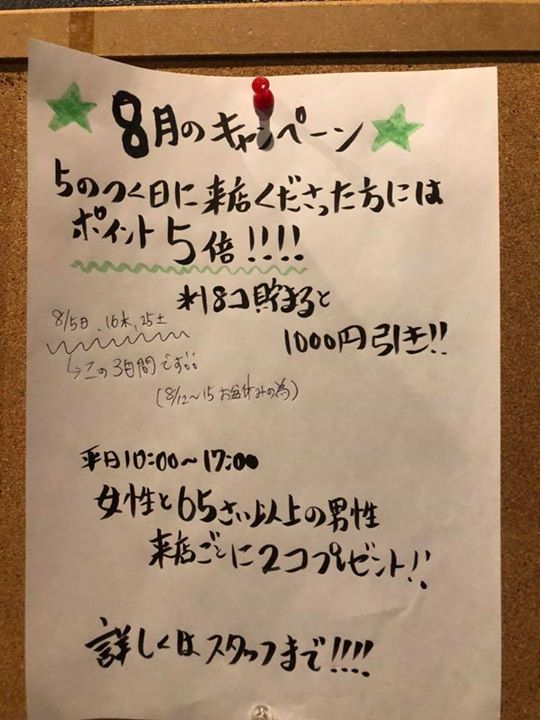 8月のキャンペーン
5のつく日に来店くださった方には
ポイント5倍!!!!
※18コ貯まると
1000円引き!!
8/5日、16木、25土
↳この3日間です!!
(8/12〜15 お盆休みの為)
平日10:00〜17:00
女性と65さい以上の男性
来店ごとに2コプレゼント!!
詳しくはスタッフまで!!!!